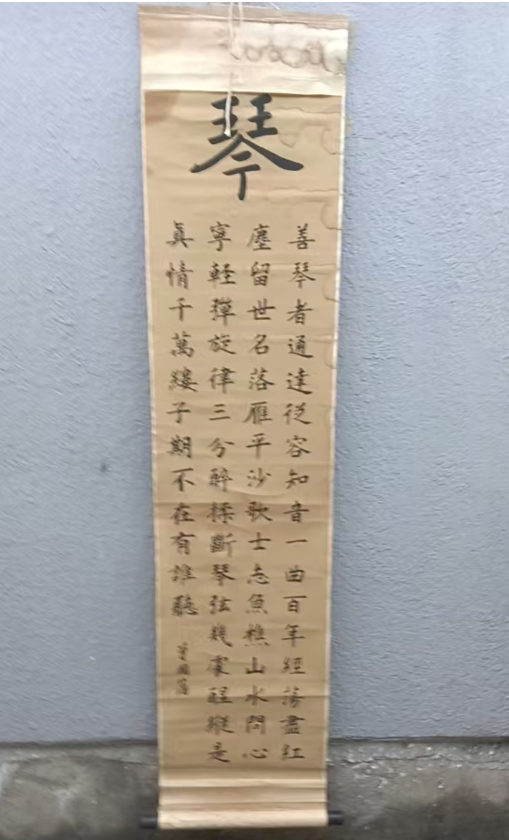 琴
善琴者通達従容知音一曲百年經蕩盡紅
塵留世名落雁平沙歌士志魚樵山水問心
寧軽彈旋律三分醉揉斷琴弦幾處醒縱是
眞情千萬縷子期不在有誰聽
曾國藩